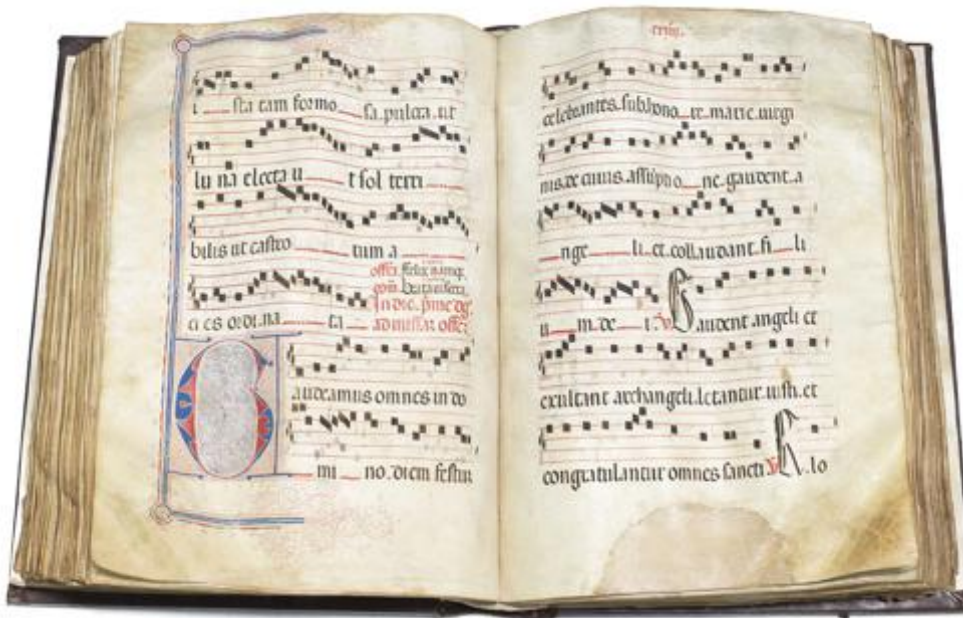 i sta tam formo sa pulcra ut
lu na electa u t sol terri
bilis ut castro rum a
offer. felix namqz
com. beata viscera
ci es ordi na ta
ad missaz offez
audeamus omnes in do
mi no diem festuz
celebrantes sub hono re marie uirgi
nis de cuius assuptio ne gaudent a
nge li et collaudant fi li
u m de i. V Gaudent angeli et
exultant archangeli letantur iusti et
congratulantur omnes sancti V E lo